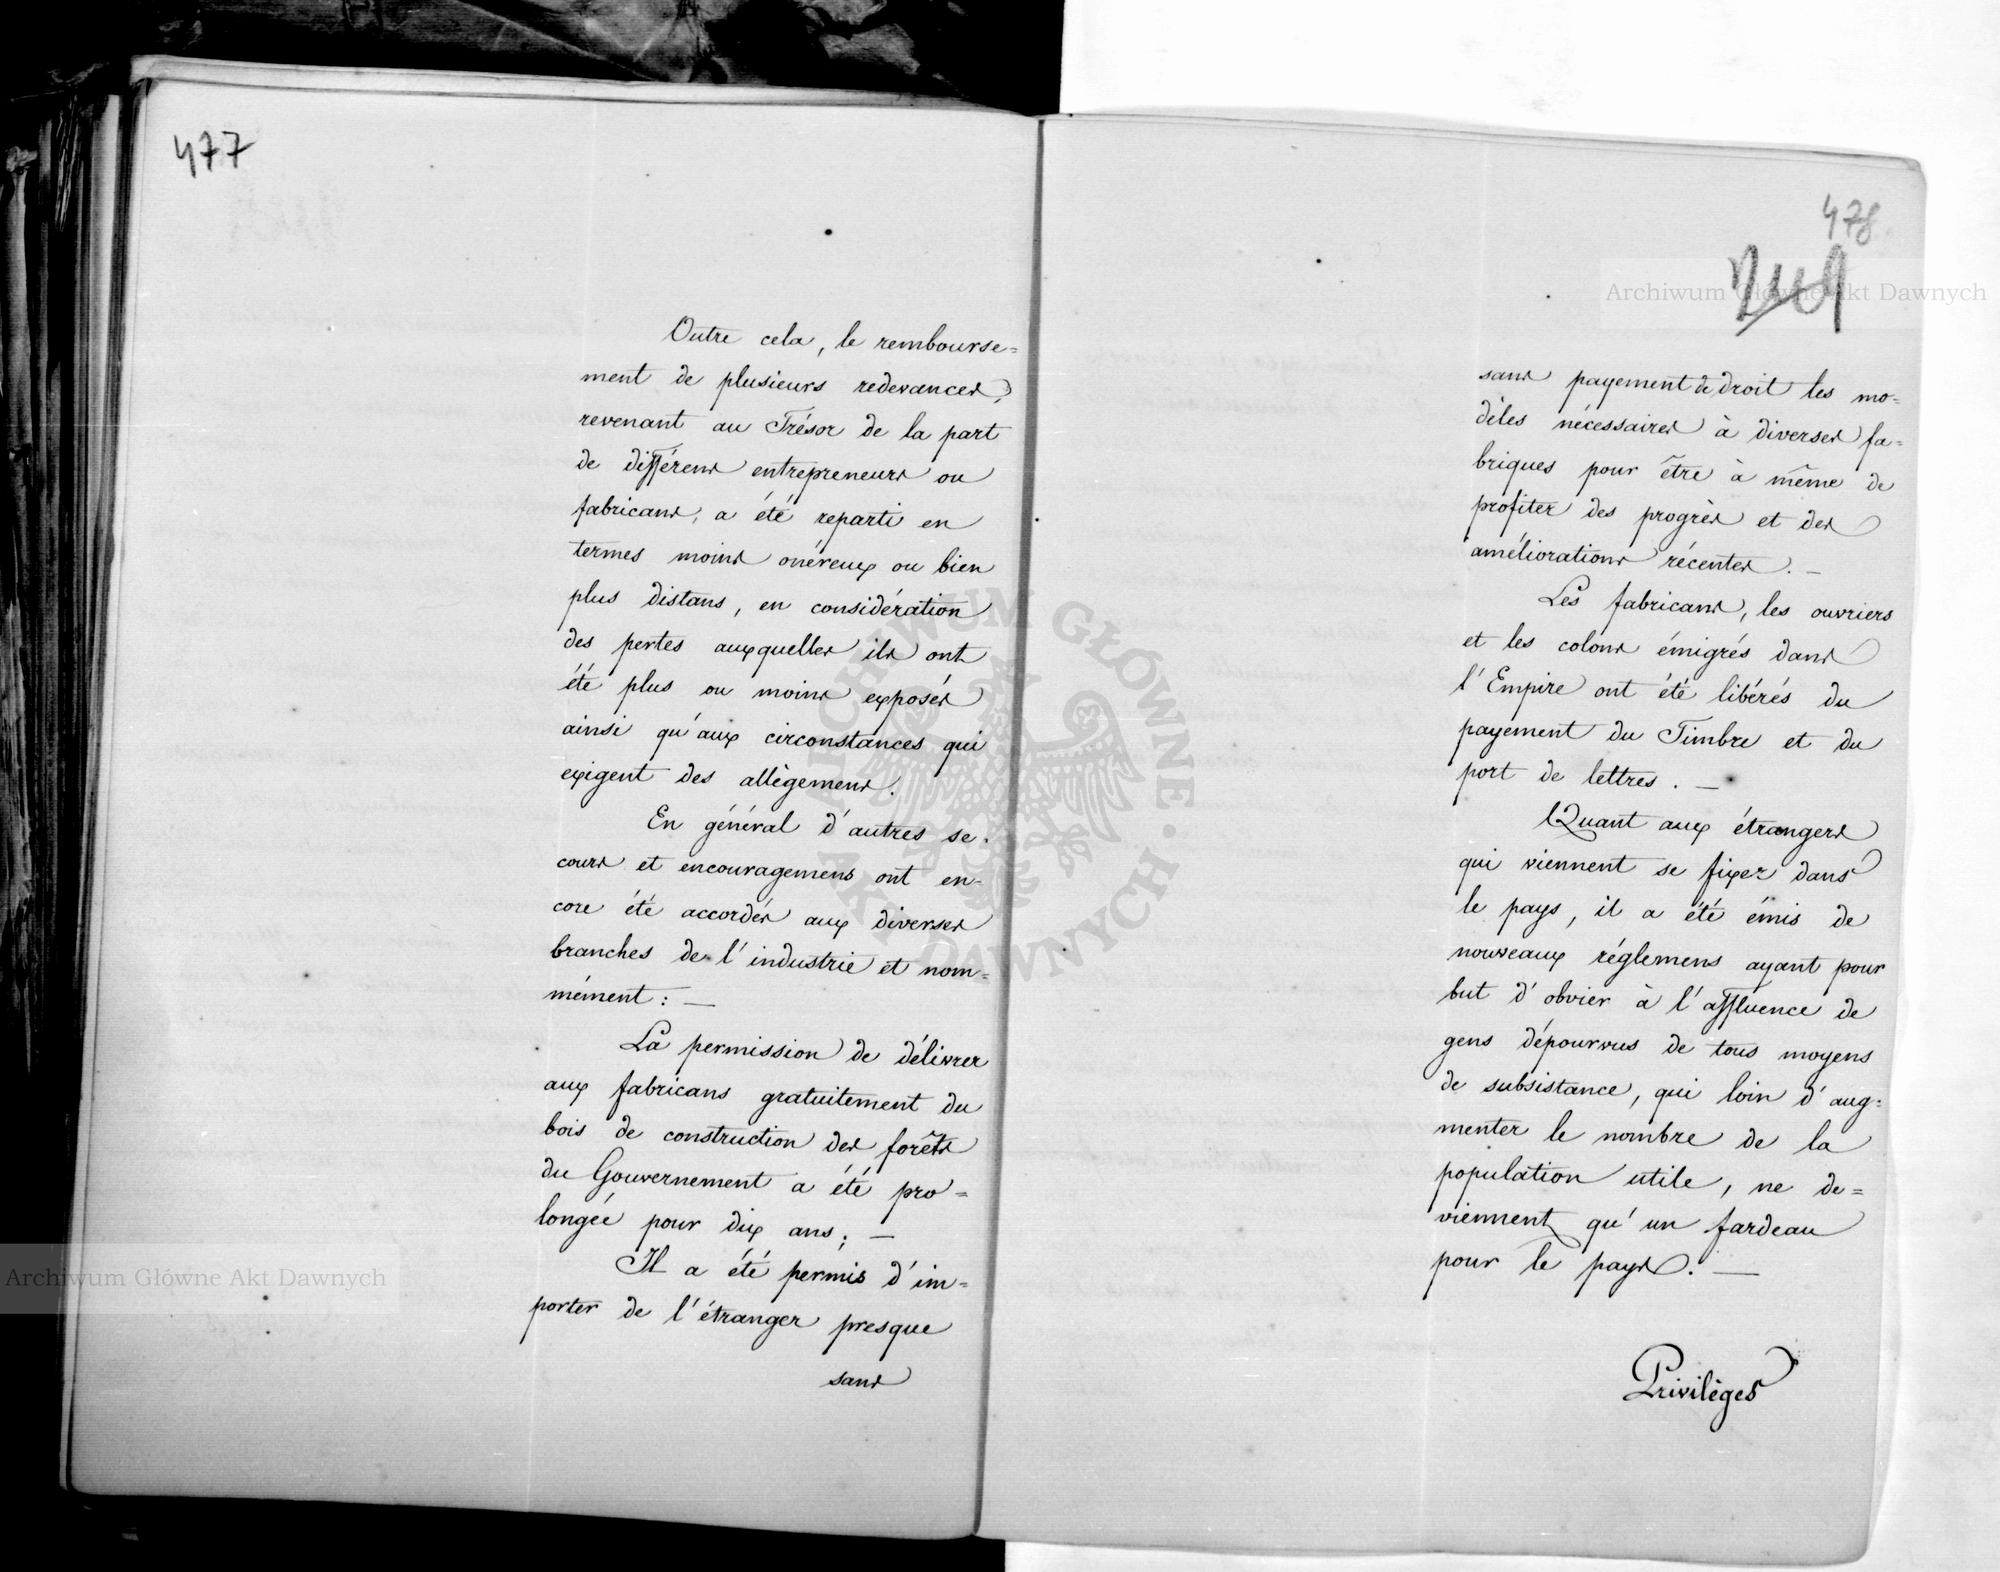 477
Outre cela, le rembourse=
ment de plusieurs redevances,
revenant au Trésor de la part
de différens entrepreneurs ou
fabricans, a été reparti en
termes moins onéreux ou bien
plus distans, en considération
des pertes auxquelles ils ont
été plus ou moins exposés
ainsi qu'aux circonstances qui
exigent des allègemens.
En général d'autres se-
cours et encouragemens ont en-
core été accordés aux diverses
branches de l'industrie et nom=
mément: —
La permission de délivrer
aux fabricans gratuitement du
bois de construction des forêts
du Gouvernement a été pro=
longée pour dix ans; —
Il a été permis d'im=
porter de l'étranger presque
sans
478
sans payement de droit les mo=
dèles nécessaires à diverses fa=
briques pour être à même de
profiter des progrès et des
améliorations récentes. —
Les fabricans, les ouvriers
et les colons émigrés dans
l'Empire ont été libérés du
payement du Timbre et du
port de lettres. —
Quant aux étrangers
qui viennent se fixer dans
le pays, il a été émis de
nouveaux réglemens ayant pour
but d'obvier à l'affluence de
gens dépourvus de tous moyens
de subsistance, qui loin d'aug=
menter le nombre de la
population utile, ne de=
viennent qu'un fardeau
pour le pays. —
Privilèges
Archiwum Główne Akt Dawnych
Archiwum Główne Akt Dawnych
ARCHIWUM GŁÓWNE · AKT DAWNYCH ·